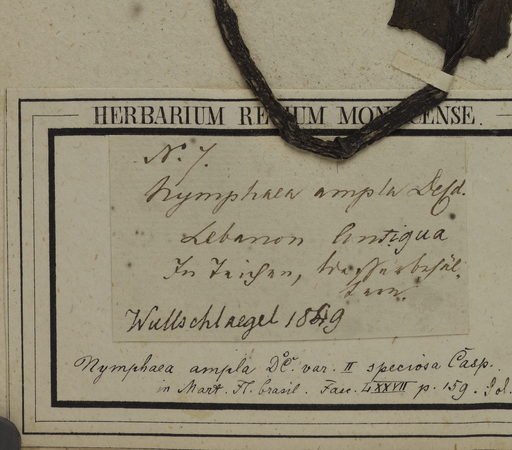 HERBARIUM REGIUM MONACENSE.
N. 7.
Nymphaea ampla Desf.
Lebanon Antigua
In Teichen, Wasserbehäl-
tern.
Wullschlaegel 1849
Nymphaea ampla DC. var. II speciosa Casp.
in Mart. Fl. brasil. Fasc. LXXVII p. 159.